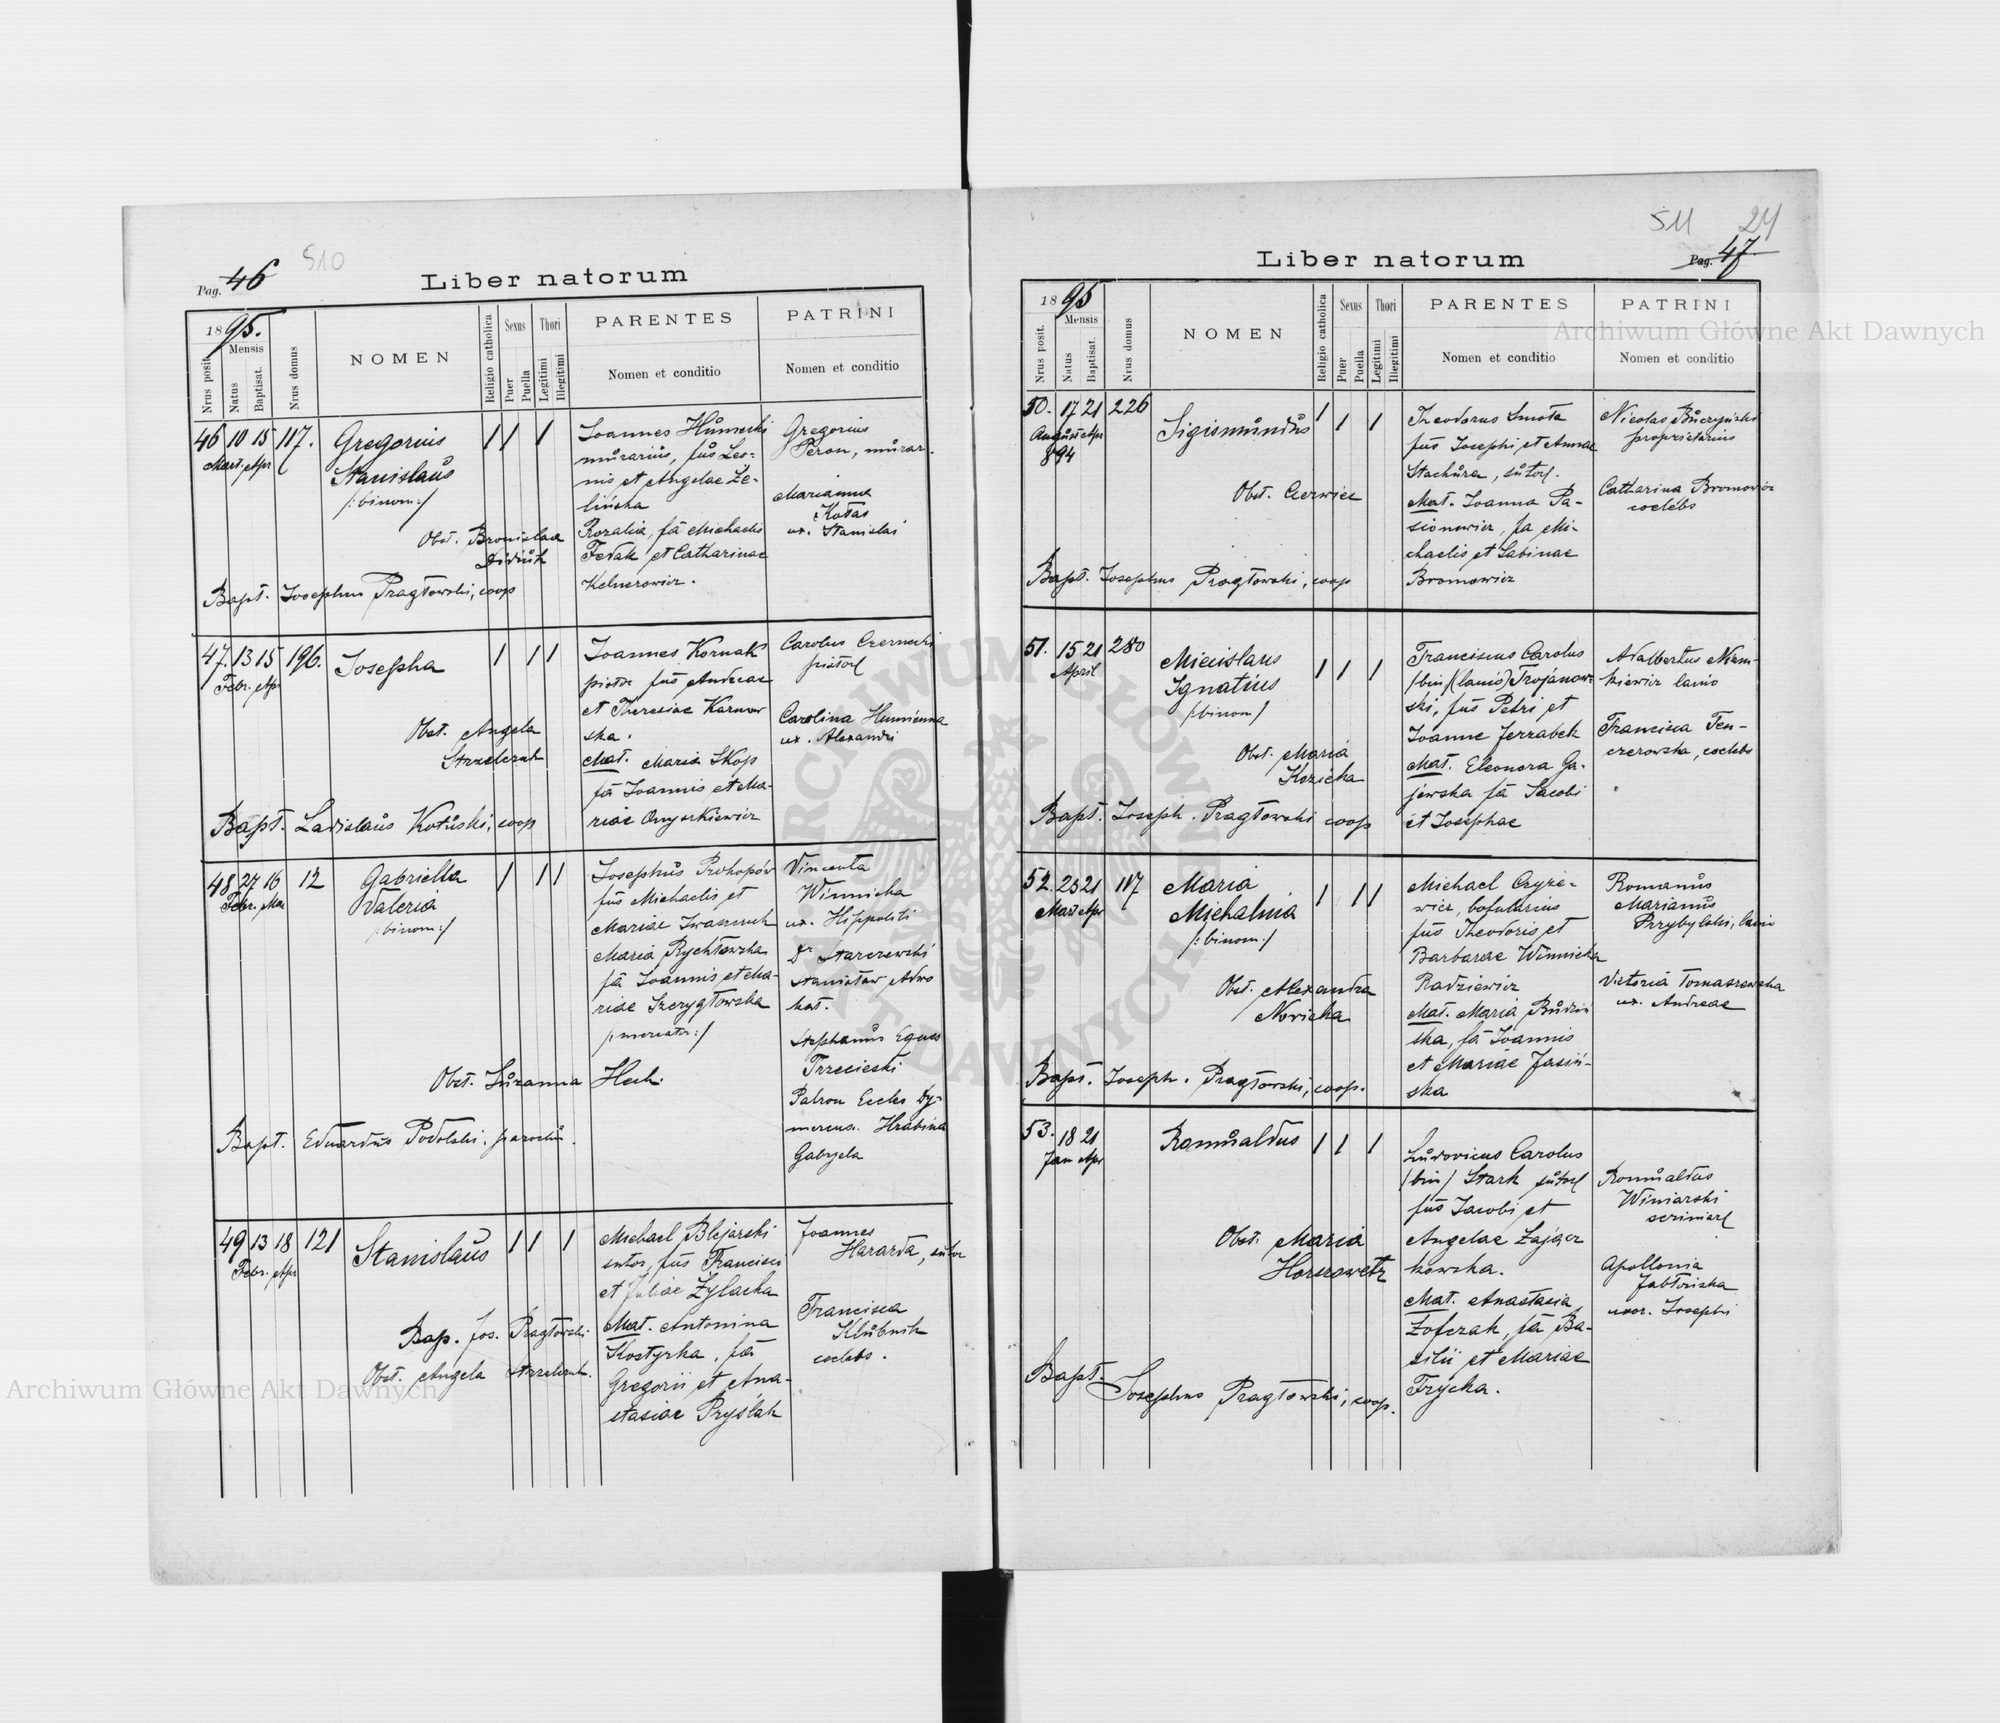 510
Pag. 46
Liber natorum
1895.
Mensis
Nrus posit.
Natus
Baptisat.
Nrus domus
NOMEN
Religio catholica
Sexus
Puer
Puella
Thori
Legitimi
Illegitimi
PARENTES
Nomen et conditio
PATRINI
Nomen et conditio
46 10 15 117.
Mart. Apr
Gregorius
Stanislaus
/:binom:/
Obst. Bronislaa
Bapt. Josephus Pragłowski, coop
Joannes Humecki
murarius, fus Leo-
nis et Angelae Ze-
lińska
Rozalia, fa Michaelis
Fedak et Catharinae
Kelnerowicz.
Gregorius
Peron, murar.
Marianna
Kotas
ux. Stanislai
47. 13 15 196.
Febr. Apr
Josepha
Obst. Angela
Strzelczuk
Bapt. Ladislaus Kotuski, coop
Joannes Kornak
pistor fus Andreae
et Theresiae Karnow
ska.
Mat. Maria Skop
fa Joannis et Ma-
riae Onyszkiewicz
Carolus Czernecki
pistor
Carolina Humienna
ux. Alexandri
48 27 16 12
Febr. Mar
Gabriella
Valeria
/:binom:/
Obst. Zuzanna Heck.
Bapt. Eduardus Podolski. parochus.
Josephus Prokopów
fus Michaelis et
Mariae Iwaszczuk
Maria Rychłowska
fa Joannis et Ma-
riae Szczygłowska
/:mercator:/
Vincenta
Winnicka
ux. Hippoliti
Dr Starczewski
Stanisław, Adwo
kat.
Stephanus Eques
Trzecieski
Patron Eccles Dy-
Hrabina
Gabryela
49 13 18 121
Febr. Apr
Stanislaus
Bap. Jos. Pragłowski
Obst. Angela Strzelczuk.
Michael Blejarski
sutor, fus Francisci
et Juliae Zylacka
Mat. Antonina
Kostyrka, fa
Gregorii et Ana-
stasiae Pryślak
Joannes
Hararda, sutor
Francisca
Klubnik
coelebs.
511 24
Pag. 47
Liber natorum
1895
Mensis
Nrus posit.
Natus
Baptisat.
Nrus domus
NOMEN
Religio catholica
Sexus
Puer
Puella
Thori
Legitimi
Illegitimi
PARENTES
Nomen et conditio
PATRINI
Nomen et conditio
50. 17 21 226
August Apr
894
Sigismundus
Obst. Czerwiec
Bapt. Josephus Pragłowski, coop
Theodorus Smoła
fus Josephi et Annae
Stachura, sutor.
Mat. Joanna Pa-
sionowicz, fa Mi-
chaelis et Sabinae
Bromowicz
Nicolas Buczyński
proprietarius
Catharina Bromowicz
coelebs
51. 15 21 280
April
Miecislaus
Ignatius
/:binom/
Obst. Maria
Kozicka
Bapt. Joseph. Pragłowski coop
Franciscus Carolus
/bin/ (lanio) Trojanow
ski, fus Petri et
Joanne Jerzabek
Mat. Eleonora Ga-
jewska fa Jacobi
et Josephae
Adalbertus Niem-
kiewicz lanio
Francisca Ten-
czerowska, coelebs
52. 23 21 117
Mart Apr
Maria
Michalina
/:binom:/
Obst. Alexandra
Novicka
Bapt. Joseph. Pragłowski, coop.
Michael Cyrie-
wicz,
fus Theodoris et
Barbarae Winnicka
Radziewicz
Mat. Maria Budziń
ska, fa Joannis
et Mariae Jasiń-
ska
Romanus
Marianus
Przybylski, lanio
Victoria Tomaszewska
ux. Andreae
53. 18 21
Jan Apr
Romualdus
Obst. Maria
Horszowetz
Bapt. Josephus Pragłowski, coop.
Ludovicus Carolus
/bin/ Stark sutor
fus Jacobi et
Angelae Zającz
kowska.
Mat. Anastasia
Zofczak, fa Ba-
silii et Mariae
Frycka.
Romualdus
Winiarski
scriniar
Apollonia
Jabłońska
uxor. Josephi
Archiwum Główne Akt Dawnych
Archiwum Główne Akt Dawnych
ARCHIWUM GŁÓWNE AKT DAWNYCH